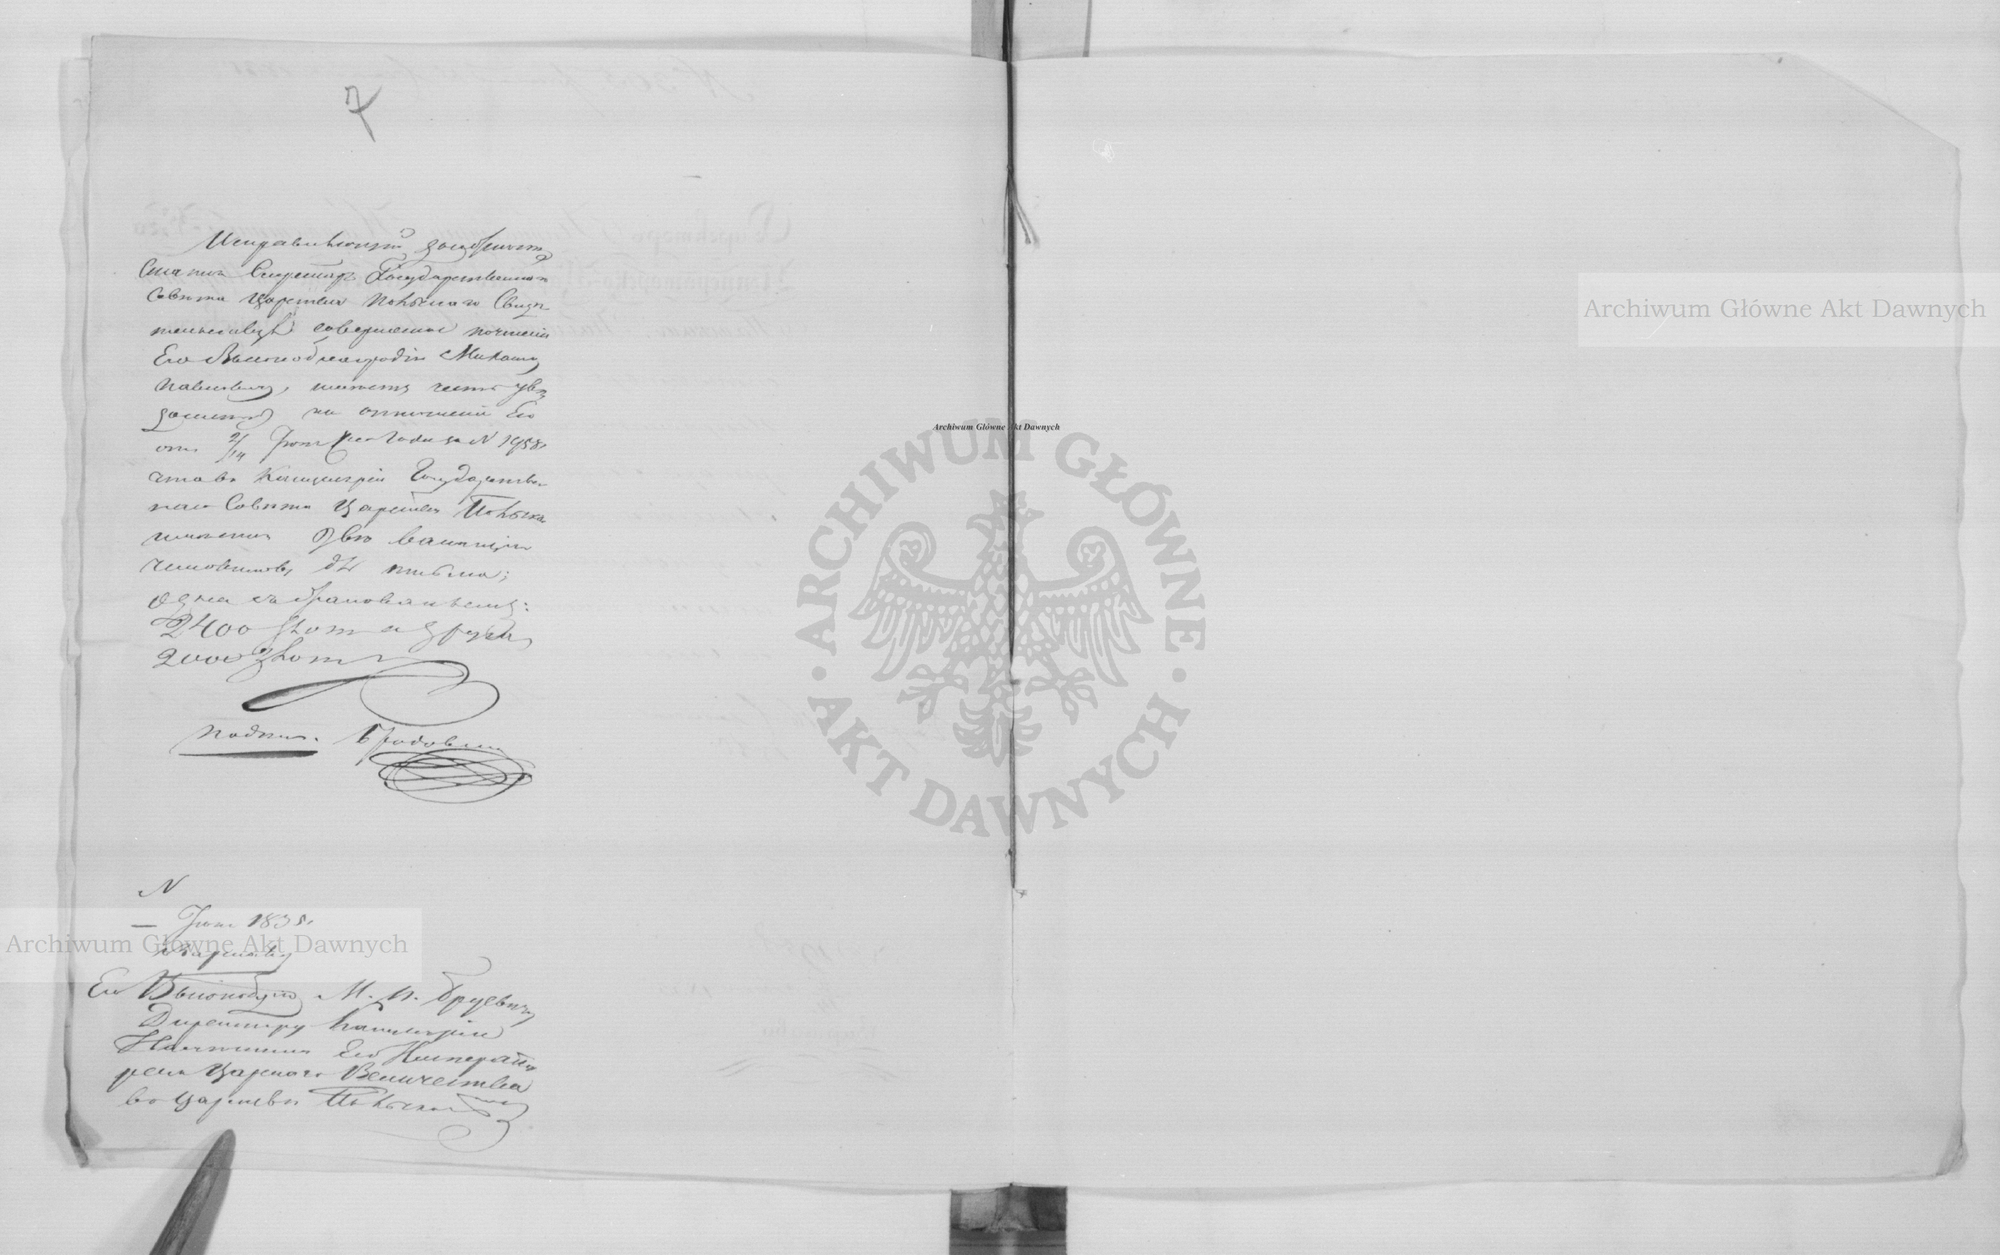 7
Исправляющій должность
Статсъ Секретаря Государственнаго
Совѣта Царства Польскаго Свидѣ
тельствуя совершенное почтеніе
Его Высокоблагородію Михаилу
Павловичу, имѣетъ честь увѣ
домить на отношеніе Его
отъ 2/14 Іюня сего года за N 1958.
что въ Канцеляріи Государствен
наго Совѣта Царства Польскаго
имѣются двѣ ваканціи
чиновниковъ для письма;
одна съ жалованьемъ:
2400 злот а другая
2000 злот
подпис. Бродовскій
N
— Іюня 1835.
въ Варшавѣ
Его Высокоблаг. М. П.
Директору Канцеляріи
Намѣстника Его Императо
рско Царскаго Величества
въ Царствѣ Польскомъ
Archiwum Główne Akt Dawnych
Archiwum Główne Akt Dawnych
Archiwum Główne Akt Dawnych
ARCHIWUM GŁÓWNE · AKT DAWNYCH ·